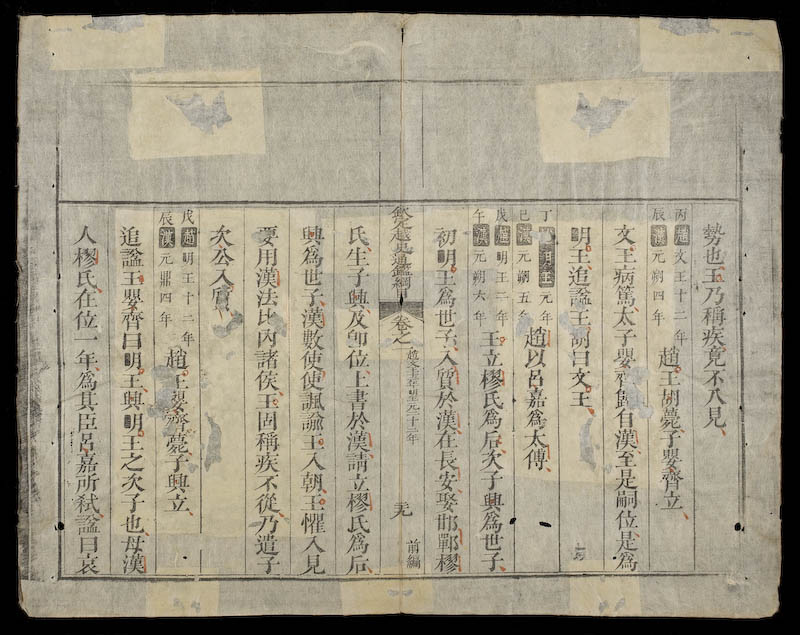 勢也王乃稱疾竟不入見
丙趙文王十二年
辰漢元朔四年
趙王胡薨子嬰齊立
文王病篤太子嬰齊歸自漢至是嗣位是爲
明王追謚王胡曰文王
丁明王元年
巳漢元朔五年
趙以呂嘉爲太傅
戊趙明王二年
午漢元朔六年
王立樛氏爲后次子興爲世子
初明王爲世子入質於漢在長安娶邯鄲樛
欽定越史通鑑綱
卷之一
前編
氏生子興及卽位上書於漢請立樛氏爲后
興爲世子漢數使使諷諭王入朝王懼入見
要用漢法比內諸侯王固稱疾不從乃遣子
次公入質
戊趙明王十二年
辰漢元鼎四年
趙王嬰齊薨子興立
追謚王嬰齊曰明王興明王之次子也母漢
人樛氏在位一年爲其臣呂嘉所弒謚曰哀